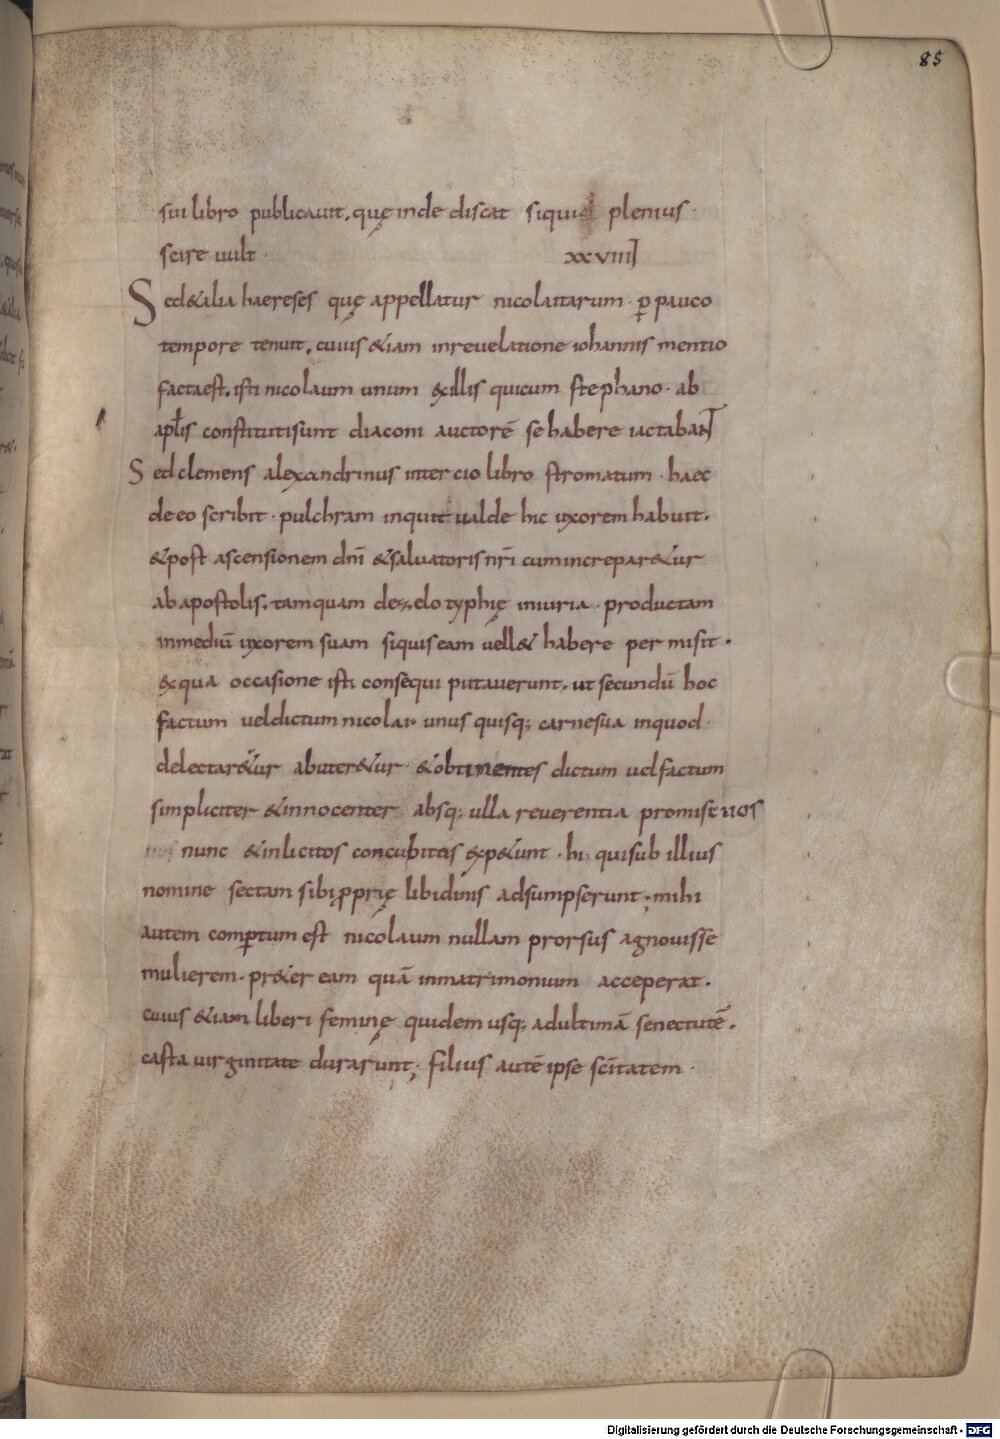 85
sui libro publicauit. quę inde discat siquis plenius ·
scire uult · xxviiii
Sed &alia haereses quę appellatur nicolaitarum · ꝑ pauco
tempore tenuit. cuius &iam inreuelatione iohannis mentio
factaest. isti nicolaum unum exillis quicum stephano · ab
apłis constitutisunt diaconi auctorē se habere iactabant
Sed clemens alexandrinus inter cio libro stromatum · haec
de eo scribit · pulchram inquit ualde hic uxorem habuit.
&post ascensionem dnī &saluatoris nrī cum increpar&ur
ab apostolis. tamquam dezelo typhię iniuria · productam
inmediū uxorem suam siquis eam uell& habere per misit ·
exqua occasione isti consequi putauerunt. ut secundū hoc
factum uel dictum nicolai · unus quisq; carnesua inquod ·
delectar&ur abuter&ur · &obtinentes dictum uel factum
simpliciter &innocenter absq; ulla reuerentia promiscuos
nunc &inlicitos concubitus exp&unt · hi quisub illius
nomine sectam sibi ꝓprię libidinis adsumpserunt; mihi
autem comꝑtum est nicolaum nullam prorsus agnouisse
mulierem · pr&er eam quā inmatrimonium acceperat ·
cuius &iam liberi feminę quidem usq; adultimā senectutē.
casta uirginitate durarunt; filius autē ipse scītatem ·
Digitalisierung gefördert durch die Deutsche Forschungsgemeinschaft - DFG